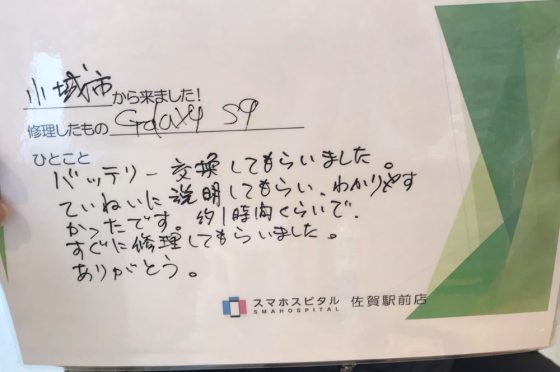 小城市から来ました!
修理したもの Galaxy S9
ひとこと
バッテリー交換してもらいました。
ていねいに説明してもらい、わかりやす
かったです。約1時間くらいで、
すぐに修理してもらいました。
ありがとう。
スマホスピタル 佐賀駅前店
SMAHOSPITAL